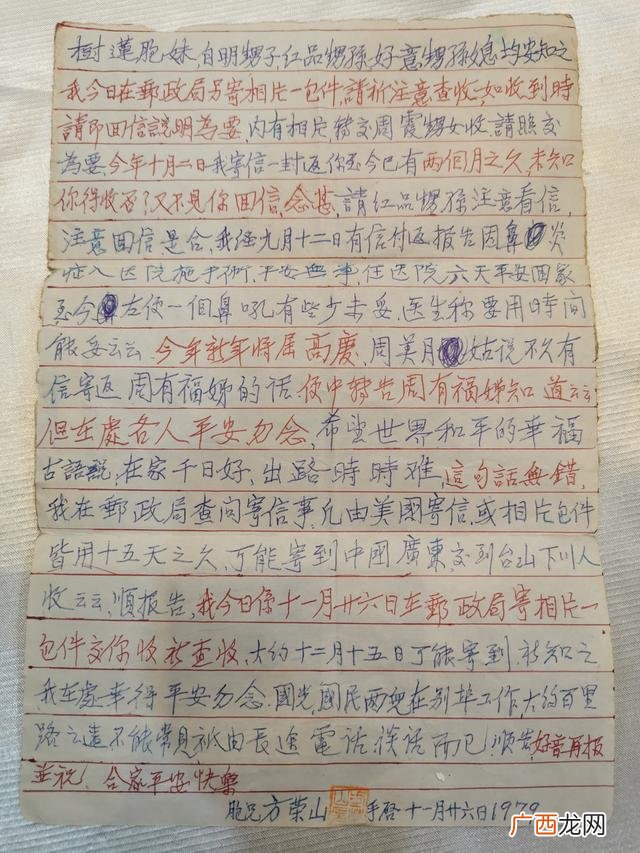 樹蓮胞妹自明甥子紅品甥孫好意甥孫媳均安知之
我今日在郵政局另寄相片一包件,請祈注意查收,如收到時
請即回信說明為要,內有相片,特交周霞甥女收,請照交
為要,今年十月二日我寄信一封返你至今已有兩個月之久,未知
你得收否?又不見你回信,念甚,請紅品甥孫注意看信,
注意回信,是合,我經九月十二日有信付返報告因鼻炎
症入医院施手術,平安無事,住医院六天平安回家
至今左使一個鼻吼有些少未妥,医生称要用時間
能妥云云,今年新年將屆高慶,周美月姑說不久有
信寄返周有福娣的話,使中轉告周有福娣知道云云
但在處各人平安勿念,希望世界和平的幸福
古語說,在家千日好,出路時時難,這句話無錯,
我在郵政局查问寄信事,凡由美國寄信,或相片包件
皆用十五天之久,可能寄到中國廣東,交到台山下川人
收云云,順报告,我今日係十一月廿六日在郵政局寄相片一
包件交你收祈查收,大約十二月十五日可能寄到,祈知之
我在處幸得平安勿念,國光,國民两兒在别埠工作,大約百里
路之遠不能常見祇由長途電話談话而已,順告,好音再报
並祝,合家平安快樂
胞兄方荣山 手啓十一月廿六日1979
广西龙网